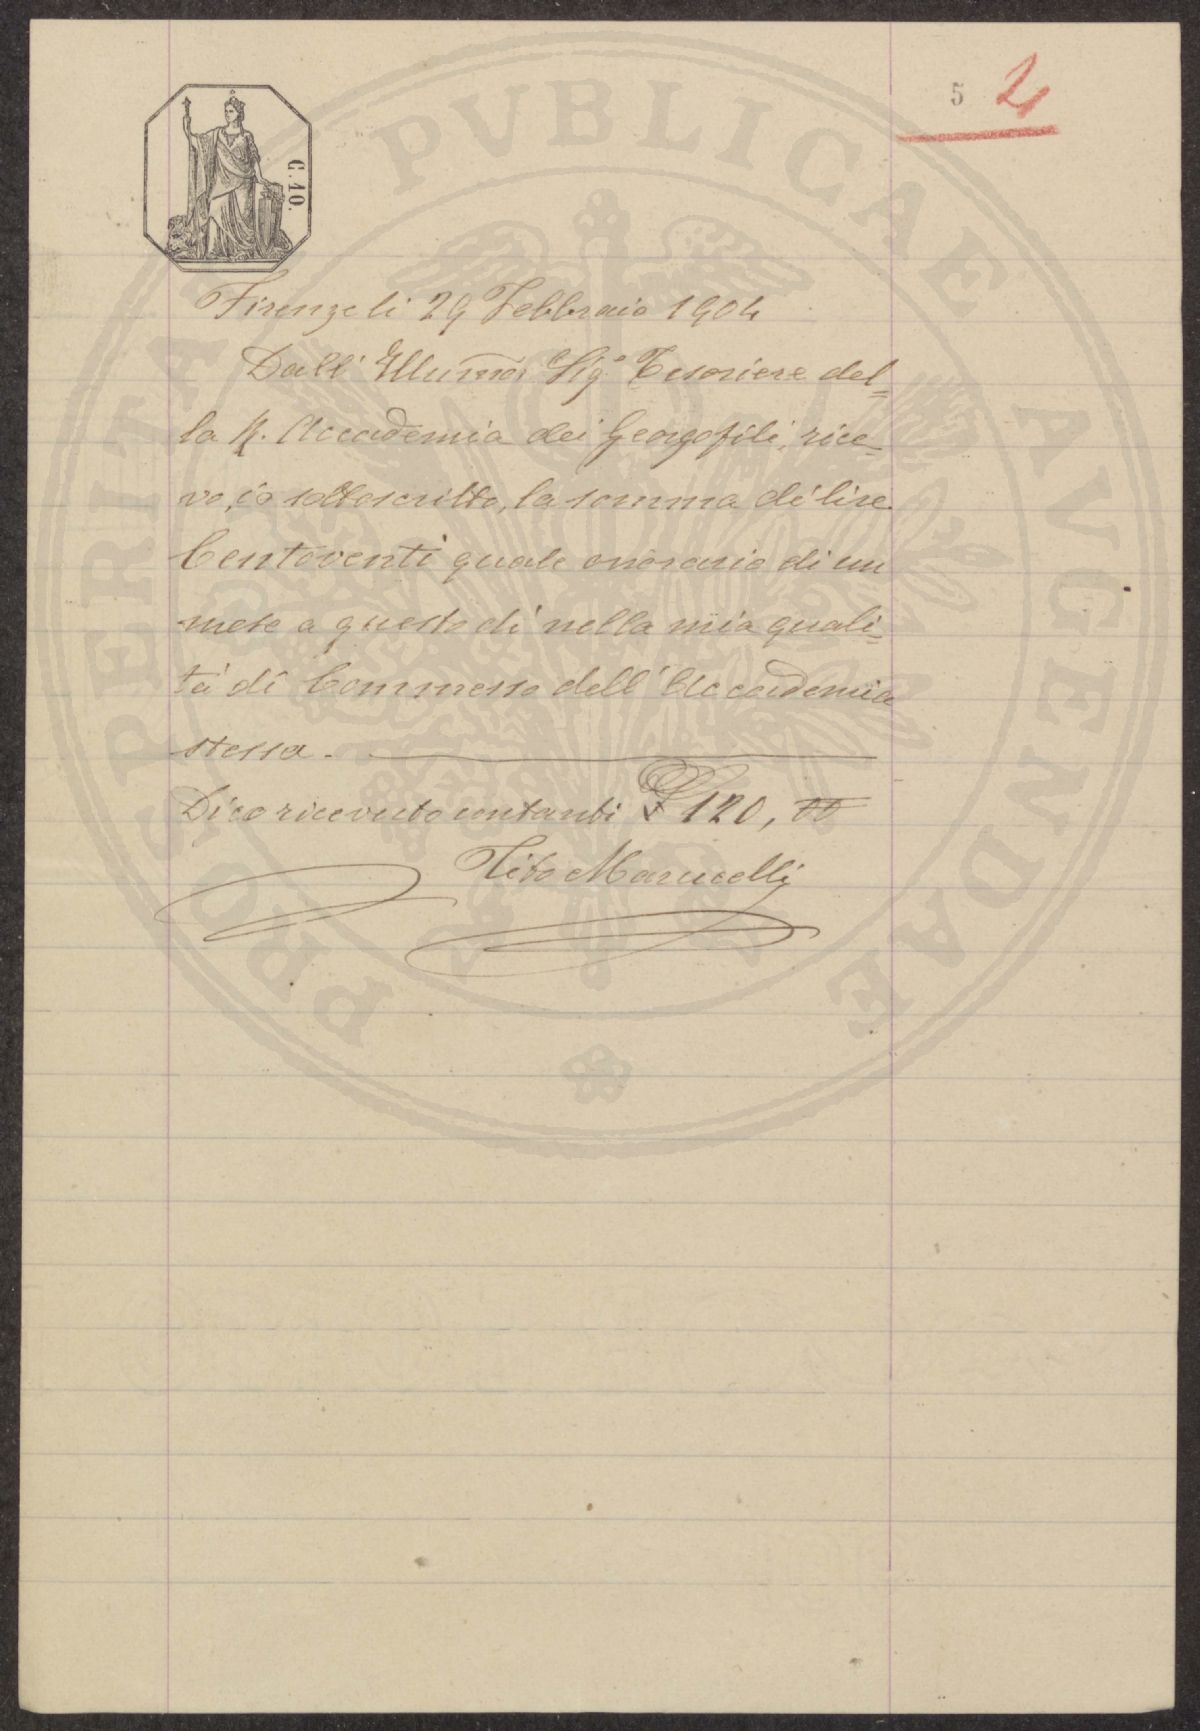 5 2
C. 10.
PROSPERITATI PVBLICAE AVGENDAE
Firenze li 29 Febbraio 1904
Dall' Illumo. Sigr. Tesoriere del=
la R. Accademia dei Georgofili, rice=
vo, io sottoscritto, la somma di lire
Centoventi quale onorario di un
mese a questo di nella mia quali=
tà di Commesso dell' Accademia
stessa.
Dico ricevuto contanti £ 120, 00
Tito Marucelli